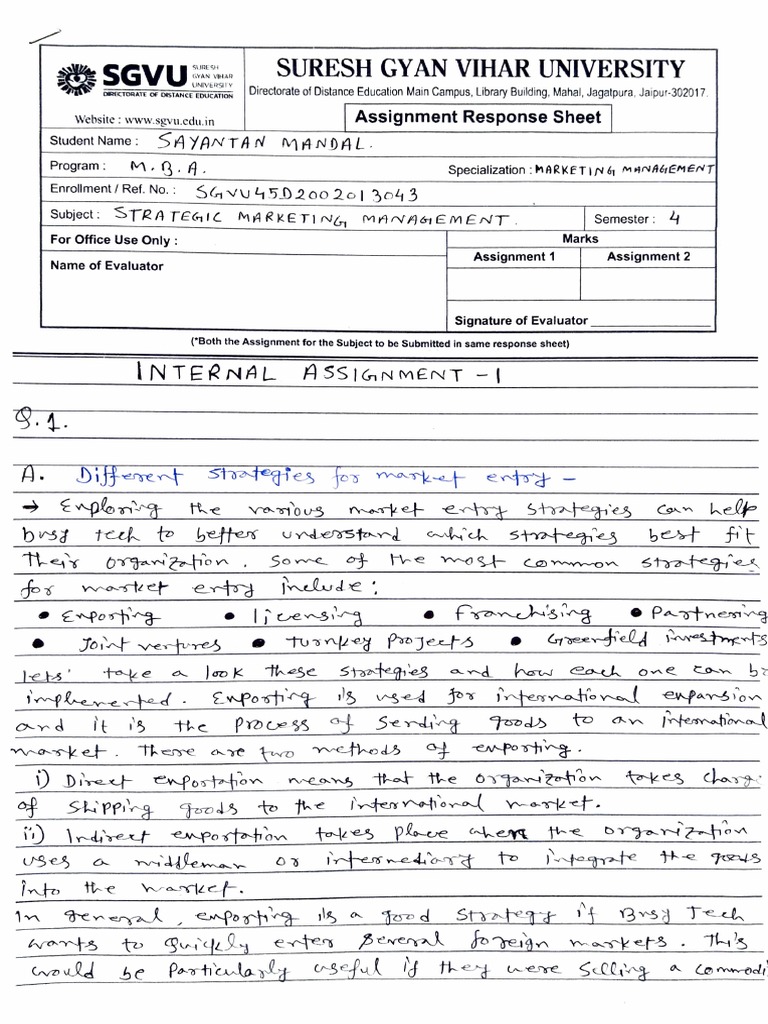 SGVU SURESH GYAN VIHAR UNIVERSITY
DIRECTORATE OF DISTANCE EDUCATION
Website : www.sgvu.edu.in
SURESH GYAN VIHAR UNIVERSITY
Directorate of Distance Education Main Campus, Library Building, Mahal, Jagatpura, Jaipur-302017.
Assignment Response Sheet
Student Name : SAYANTAN MANDAL.
Program : M.B.A. Specialization : MARKETING MANAGEMENT
Enrollment / Ref. No. : SGVU45D2002013043
Subject : STRATEGIC MARKETING MANAGEMENT. Semester : 4
For Office Use Only : Marks
Name of Evaluator Assignment 1 Assignment 2
Signature of Evaluator
(*Both the Assignment for the Subject to be Submitted in same response sheet)
INTERNAL ASSIGNMENT -1
Q.1.
A. Different strategies for market entry -
→ Exploring the various market entry strategies can help
busy tech to better understand which strategies best fit
their organization. Some of the most common strategies
for market entry include:
• Exporting • licensing • Franchising • Partnering
• Joint ventures • Turnkey Projects • Greenfield investments
lets' take a look these strategies and how each one can be
implemented. Exporting is used for international expansion
and it is the process of sending goods to an international
market. There are two methods of exporting.
i) Direct exportation means that the organization takes charge
of shipping goods to the international market.
ii) Indirect exportation takes place when the organization
uses a middleman or intermediary to integrate the goods
into the market.
In general, exporting is a good strategy if Busy Tech
wants to quickly enter several foreign markets. This
would be particularly useful if they were selling a commodi